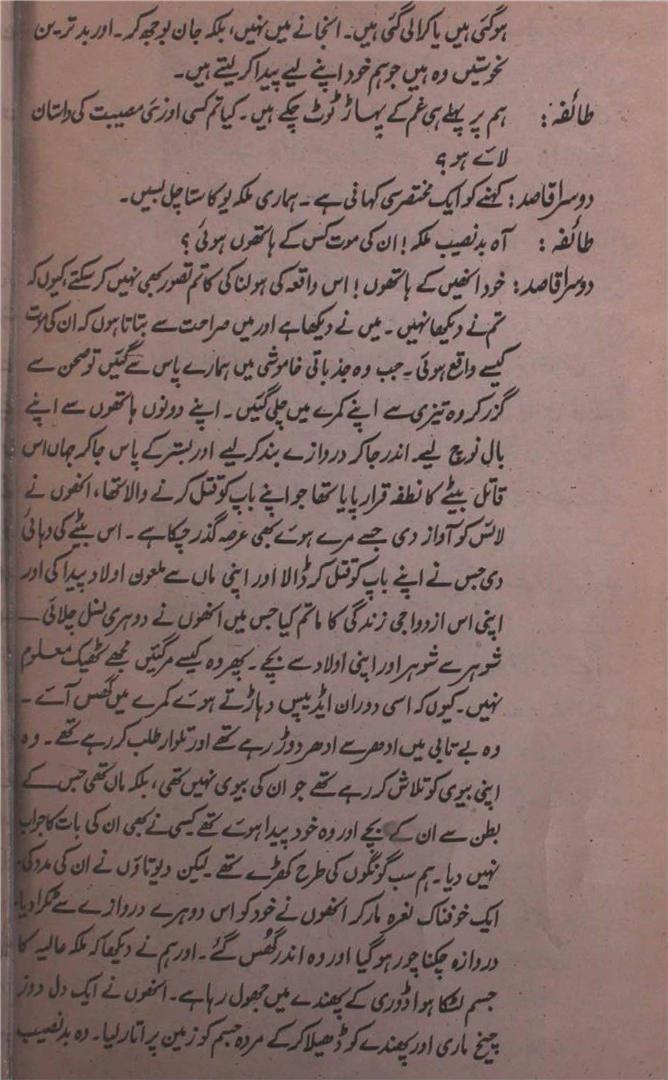 ہوگئی ہیں یا کرالی گئی ہیں۔ انجانے میں نہیں، بلکہ جان بوجھ کر۔ اور بدترین
نحوستیں وہ ہیں جو ہم خود اپنے لیے پیدا کرلیتے ہیں۔
طائفہ : ہم پر پہلے ہی غم کے پہاڑ ٹوٹ چکے ہیں۔ کیا تم کسی اور نئی مصیبت کی داستان
لائے ہو؟
دوسرا قاصد : کہنے کو ایک مختصر سی کہانی ہے۔ ہماری ملکہ یوکاستا چل بسیں۔
طائفہ : آہ بدنصیب ملکہ! ان کی موت کس کے ہاتھوں ہوئی؟
دوسرا قاصد : خود انھیں کے ہاتھوں! اس واقعہ کی ہولناکی کا تم تصور بھی نہیں کرسکتے، کیوں کہ
تم نے دیکھا نہیں۔ میں نے دیکھا ہے اور میں صراحت سے بتاتا ہوں کہ ان کی موت
کیسے واقع ہوئی۔ جب وہ جذباتی خاموشی میں ہمارے پاس سے گئیں تو صحن سے
گزر کر وہ تیزی سے اپنے کمرے میں چلی گئیں۔ اپنے دونوں ہاتھوں سے اپنے
بال نوچ لیے اندر جاکر دروازے بند کرلیے اور بستر کے پاس جاکر جہاں اس
قاتل بیٹے کا نطفہ قرار پایا تھا جو اپنے باپ کو قتل کرنے والا تھا، انھوں نے
لائس کو آواز دی جسے مرے ہوئے بھی عرصہ گذر چکا ہے۔ اس بیٹے کی دہائی
دی جس نے اپنے باپ کو قتل کر ڈالا اور اپنی ماں سے ملعون اولاد پیدا کی اور
اپنی اس ازدواجی زندگی کا ماتم کیا جس میں انھوں نے دوہری نسل چلائی —
شوہر سے شوہر اور اپنی اولاد سے بچے۔ پھر وہ کیسے مرگئیں مجھے ٹھیک معلوم
نہیں۔ کیوں کہ اسی دوران ایڈیپس دہاڑتے ہوئے کمرے میں گھس آئے۔
وہ بے تابی میں ادھر سے ادھر دوڑ رہے تھے اور تلوار طلب کر رہے تھے۔ وہ
اپنی بیوی کو تلاش کر رہے تھے جو ان کی بیوی نہیں تھی، بلکہ ماں تھی جس کے
بطن سے ان کے بچے اور وہ خود پیدا ہوئے تھے کسی نے بھی ان کی بات کا جواب
نہیں دیا۔ ہم سب گونگوں کی طرح کھڑے تھے لیکن دیوتاؤں نے ان کی مدد کی۔
ایک خوفناک نعرہ مار کر انھوں نے خود کو اس دوہرے دروازے سے ٹکرا دیا۔
دروازہ چکنا چور ہوگیا اور وہ اندر گھس گئے۔ اور ہم نے دیکھا کہ ملکہ عالیہ کا
جسم لٹکا ہوا ڈوری کے پھندے میں جھول رہا ہے۔ انھوں نے ایک دل دوز
چیخ ماری اور پھندے کو ڈھیلا کرکے مردہ جسم کو زمین پر اتار لیا۔ وہ بدنصیب